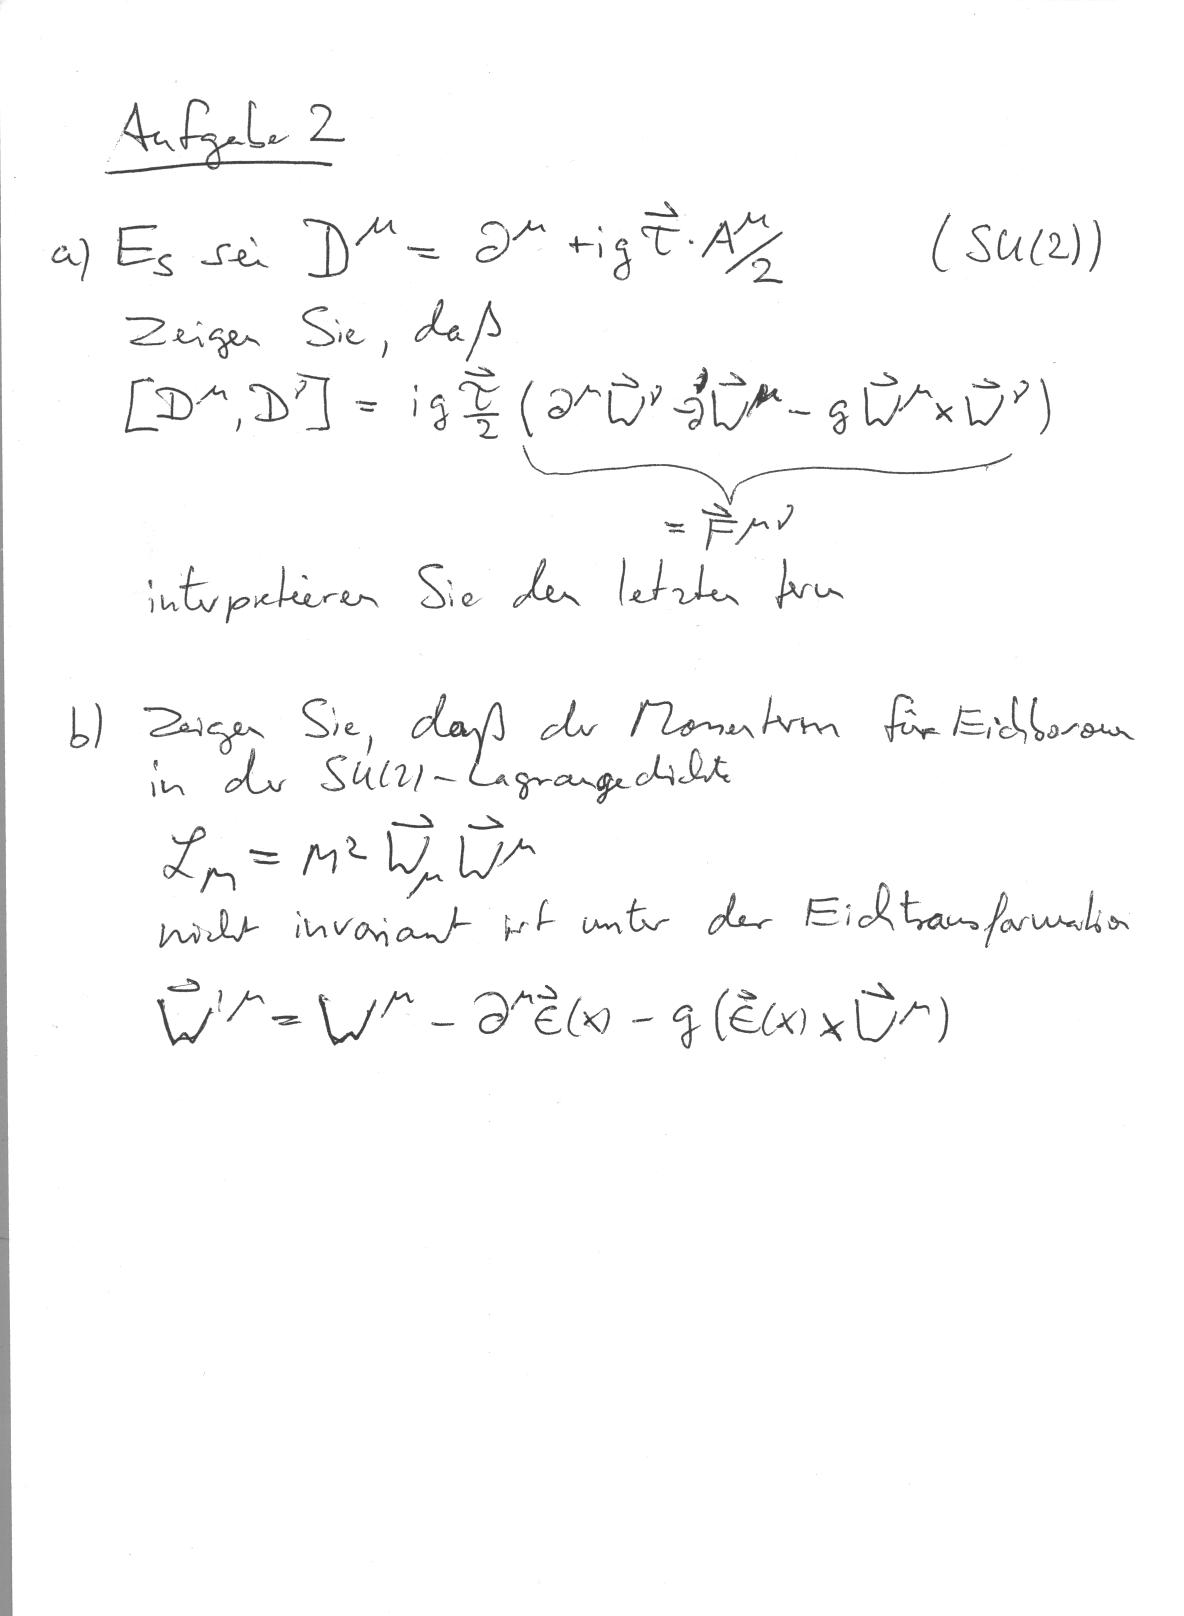 Aufgabe 2
a) Es sei D^μ = ∂^μ + ig τ⃗ · A^μ/2 (SU(2))
Zeigen Sie, daß
[D^μ, D^ν] = ig τ⃗/2 (∂^μ W⃗^ν - ∂^ν W⃗^μ - g W⃗^μ × W⃗^ν)
= F⃗^μν
interpretieren Sie den letzten Term
b) Zeigen Sie, daß der Massenterm für Eichbosonen
in der SU(2)-Lagrangedichte
ℒ_M = M² W⃗_μ W⃗^μ
nicht invariant ist unter der Eichtransformation
W⃗'^μ = W^μ - ∂^μ ε⃗(x) - g (ε⃗(x) × W⃗^μ)